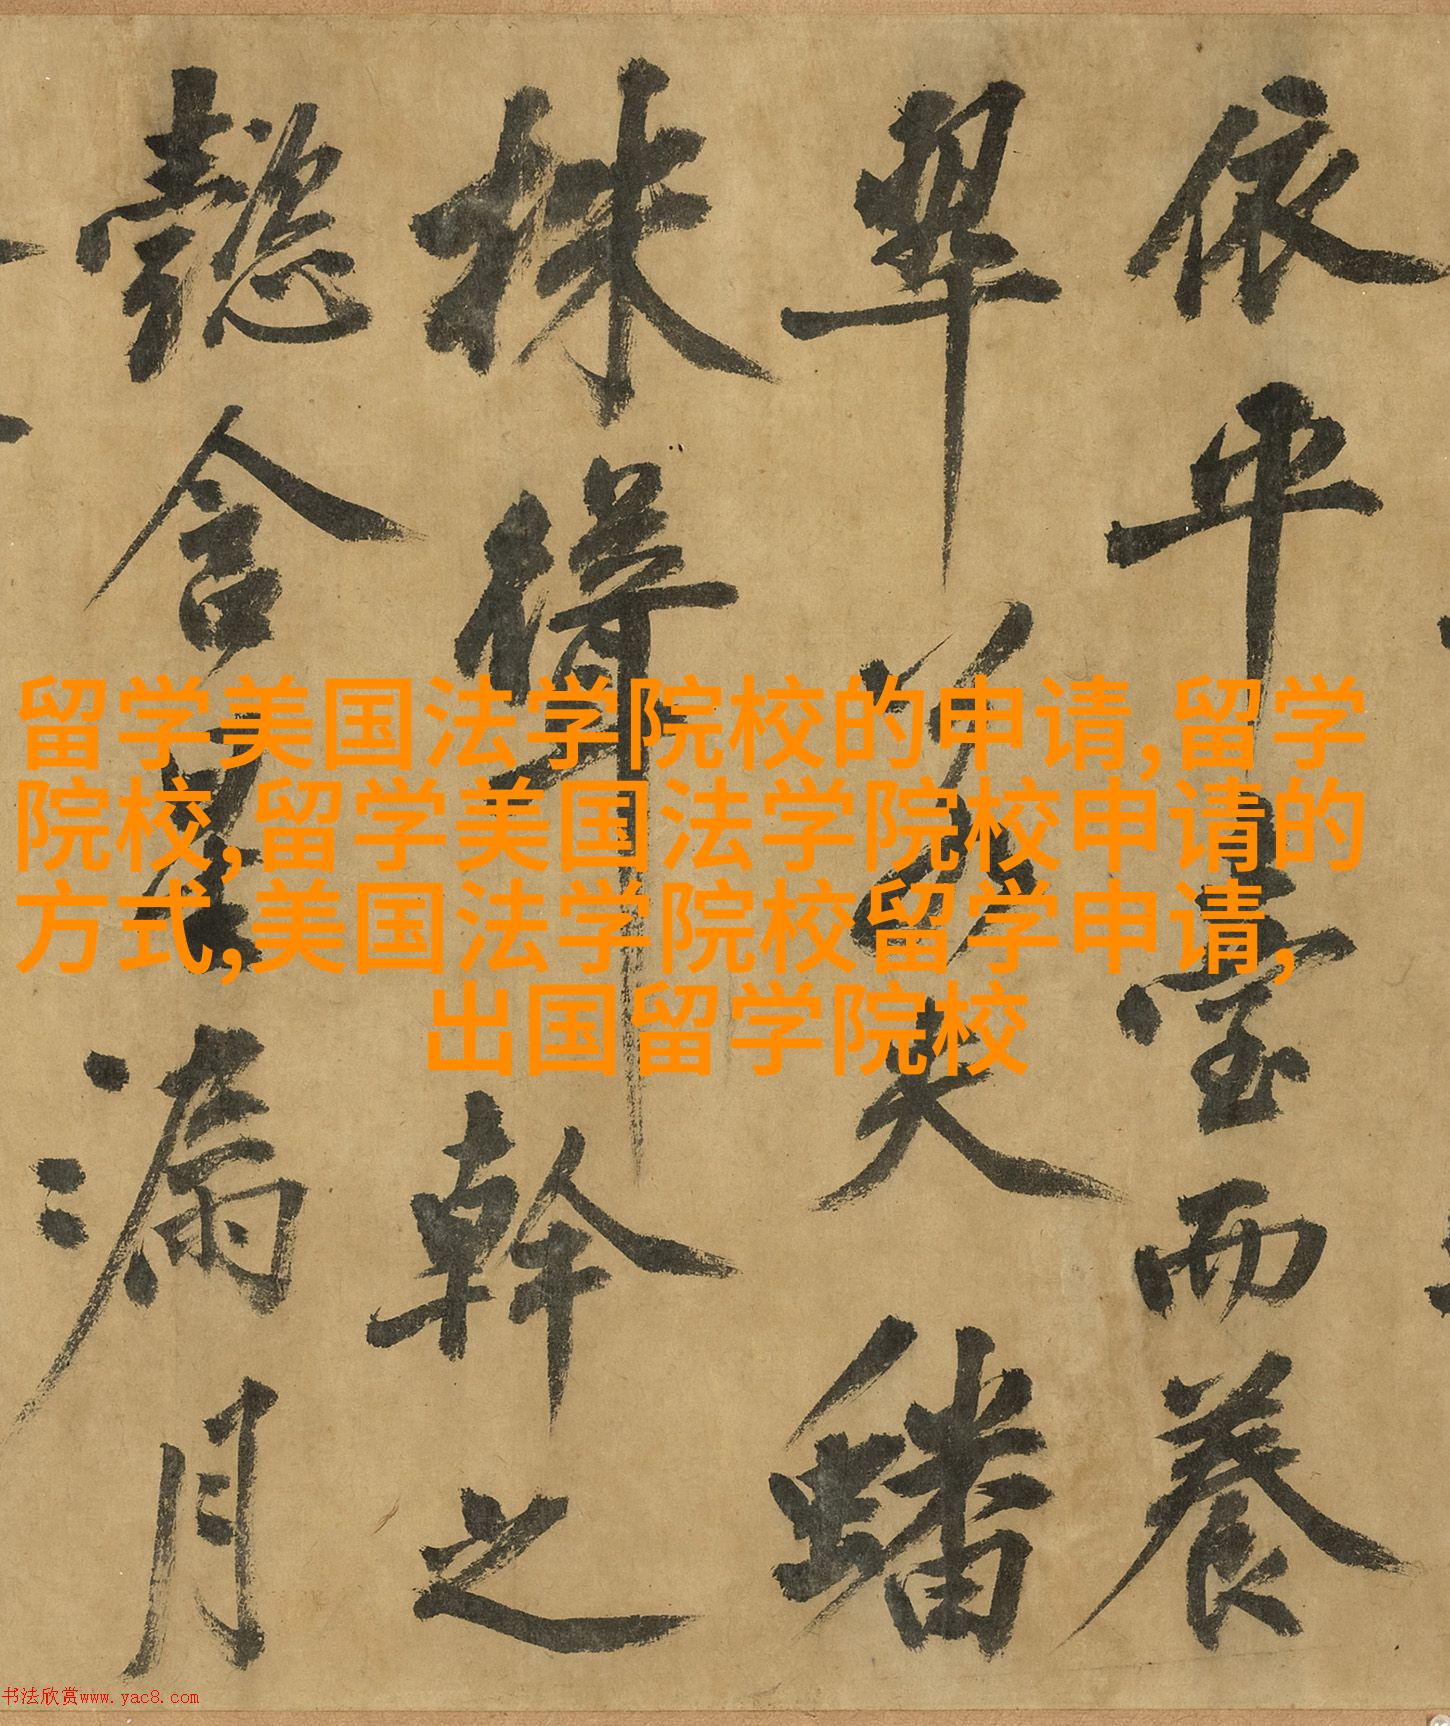 依平臺而養
翠若夫蟠
株擢幹之
懿含星漏月
留学美国法学院校的申请,留学
院校,留学美国法学院校申请的
方式,美国法学院校留学申请,
出国留学院校
书法欣赏www.yac8.com